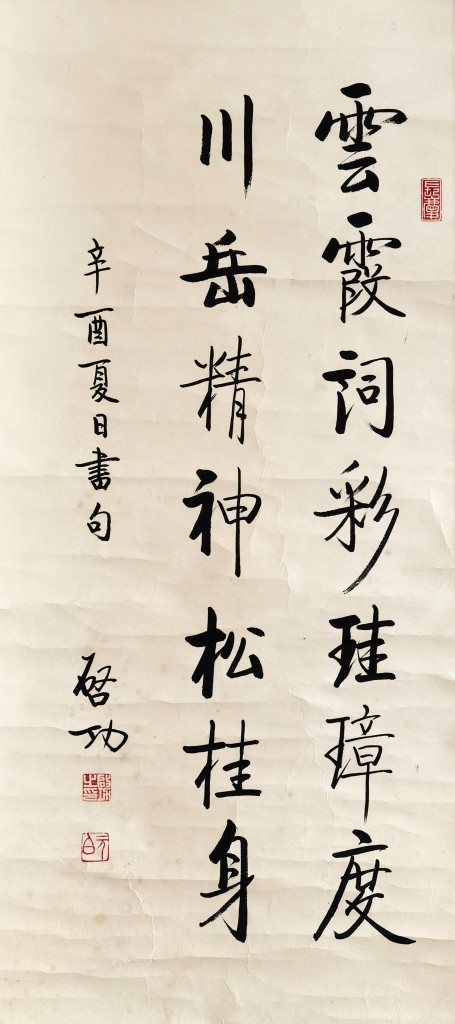 雲霞詞彩珪璋度
川岳精神松桂身
辛酉夏日書句
啓功